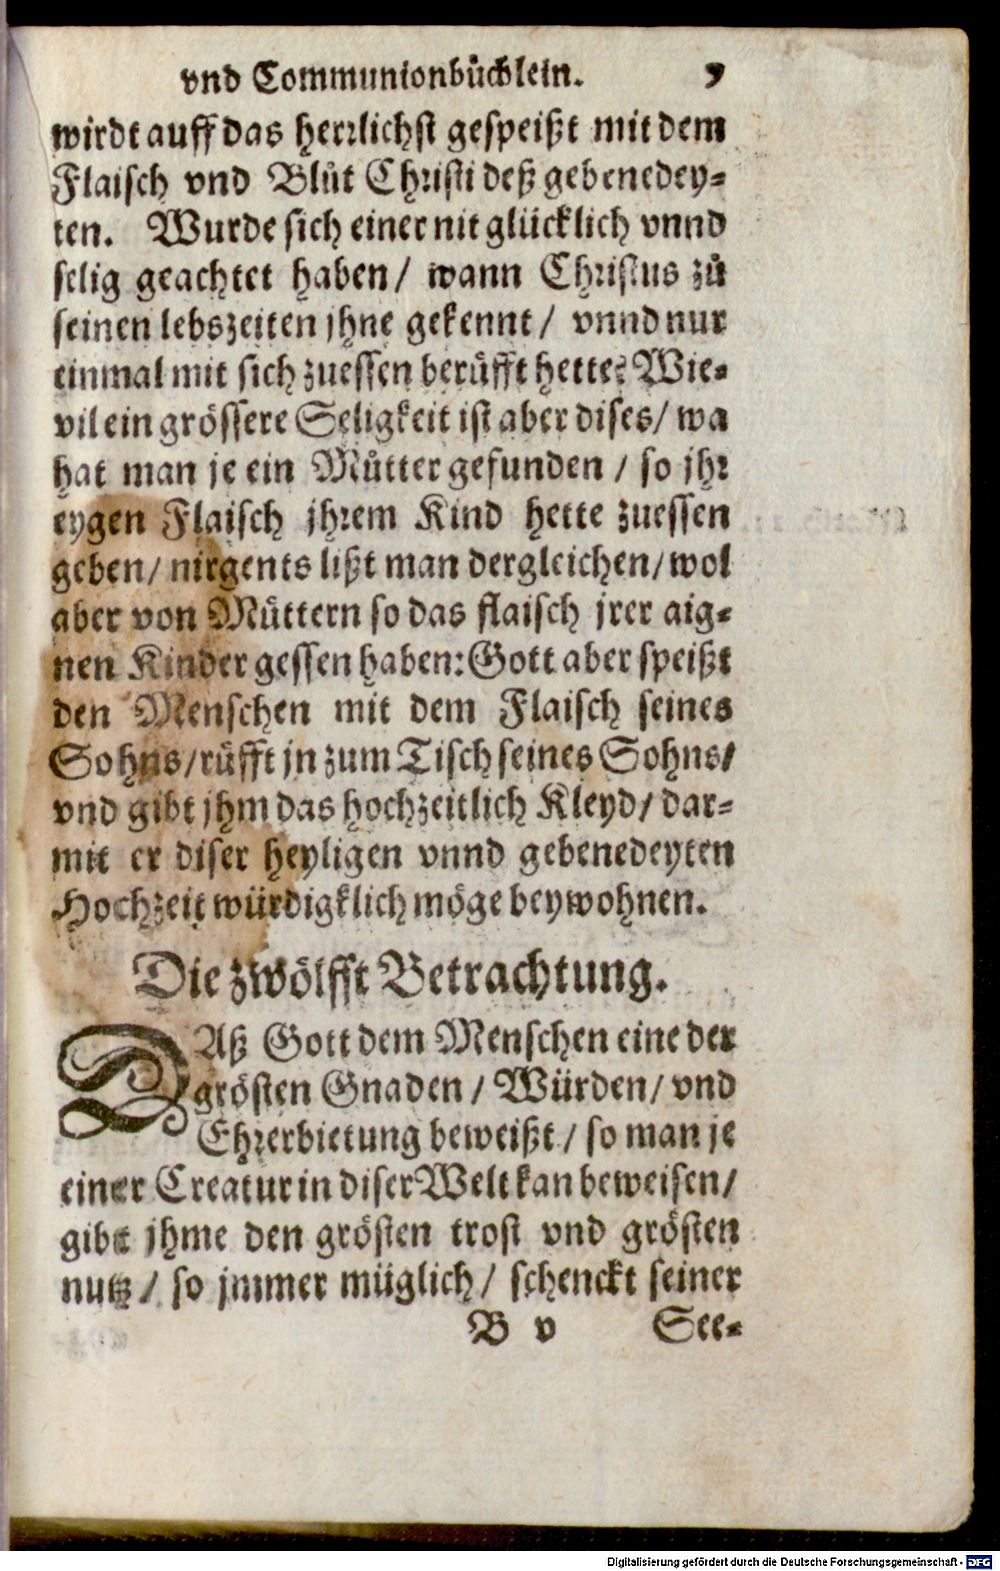 vnd Communionbůchlein. 9
wirdt auff das herrlichst gespeißt mit dem
Flaisch vnd Blůt Christi deß gebenedey-
ten. Wurde sich einer nit glücklich vnnd
selig geachtet haben / wann Christus zů
seinen lebszeiten jhne gekennt / vnnd nur
einmal mit sich zuessen berůfft hette? Wie-
vil ein grössere Seligkeit ist aber dises / wa
hat man je ein Můtter gefunden / so jhr
eygen Flaisch jhrem Kind hette zuessen
geben / nirgents lißt man dergleichen / wol
aber von Můttern so das flaisch jrer aig-
nen Kinder gessen haben: Gott aber speißt
den Menschen mit dem Flaisch seines
Sohns / růfft jn zum Tisch seines Sohns /
vnd gibt jhm das hochzeitlich Kleyd / dar-
mit er diser heyligen vnnd gebenedeyten
Hochzeit würdigklich möge beywohnen.
Die zwölfft Betrachtung.
DAß Gott dem Menschen eine der
grösten Gnaden / Würden / vnd
Ehrerbietung beweißt / so man je
einer Creatur in diser Welt kan beweisen /
gibt jhme den grösten trost vnd grösten
nutz / so jmmer müglich / schenckt seiner
B v See-
Digitalisierung gefördert durch die Deutsche Forschungsgemeinschaft - DFG